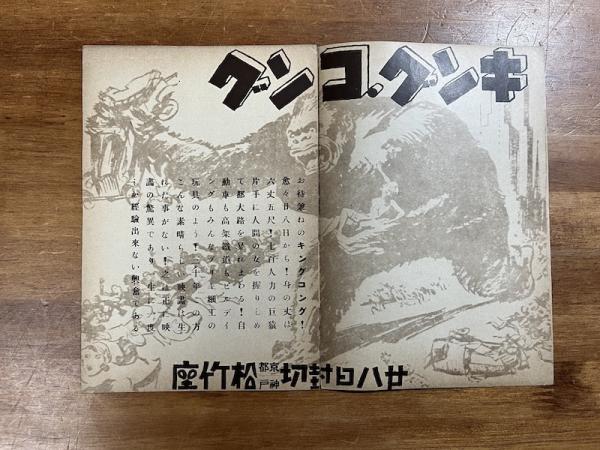 キング・コング
お待兼ねのキングコング!
愈々廿八日から!身の丈は
六丈五尺!七百人力の巨猿
片手に人間の女を握りしめ
て都大路を暴れまわる!自
動車も高架鐵道もビルディ
ングもみんなブリキ細工の
玩具のよう!二十年この方
こんな素晴らしい映畫は生
れた事がない!之は正に映
畫の驚異であり一生に一度
しか經驗出來ない興奮である
廿八日封切 京都 神戸 松竹座